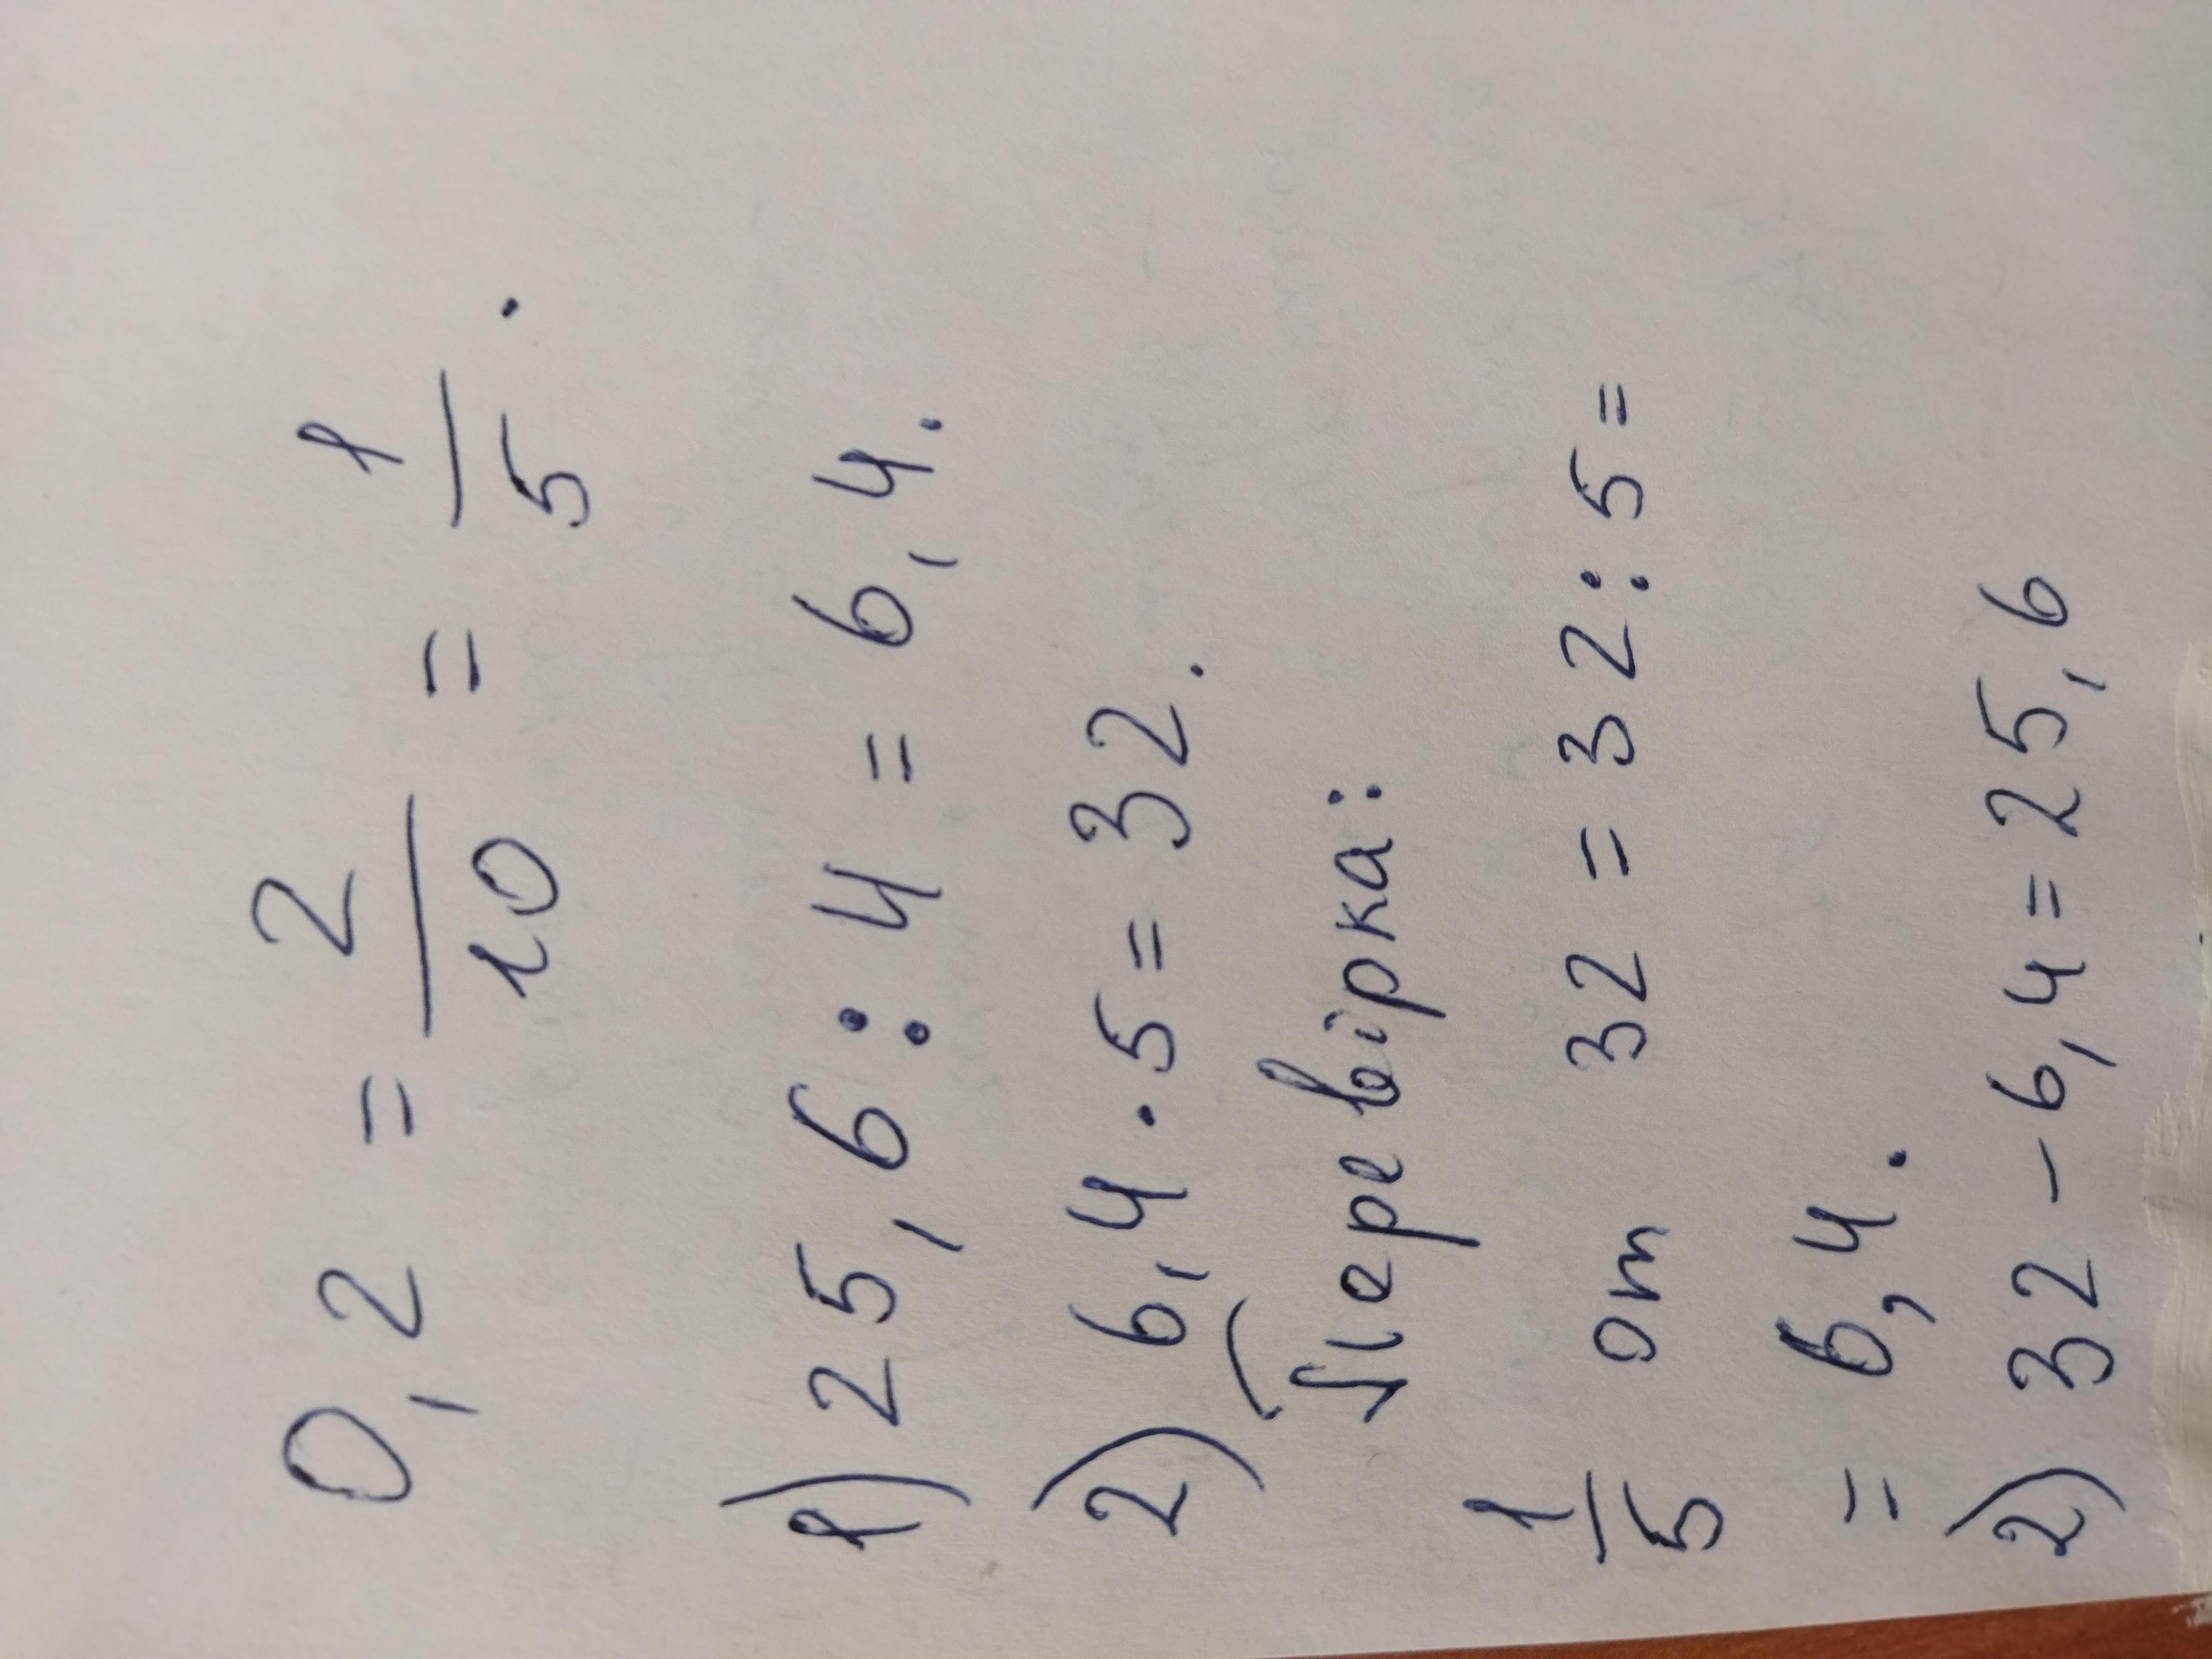 0,2 = 2/10 = 1/5.
1) 25,6 : 4 = 6,4.
2) 6,4 · 5 = 32.
Перевірка:
1/5 от 32 = 32 : 5 =
= 6,4.
2) 32 - 6,4 = 25,6